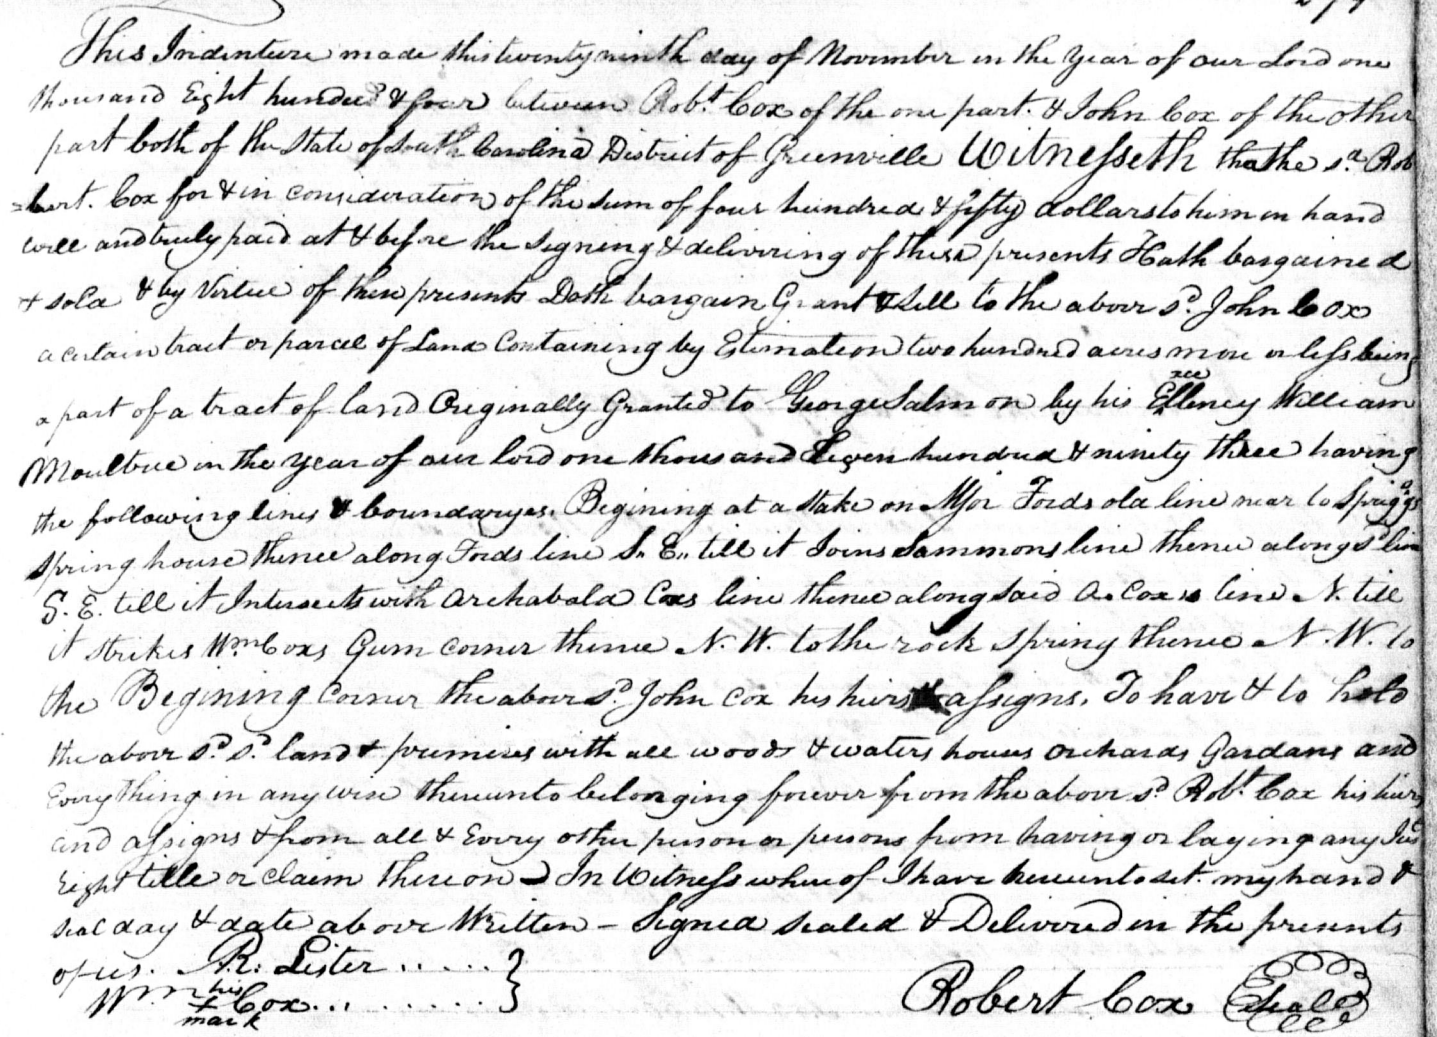 This Indenture made this twenty ninth day of November in the Year of our Lord one
thousand Eight hundred & four between Robt. Cox of the one part. & John Cox of the other
part both of the State of South Carolina District of Greenville Witnesseth tha the sd. Rob
=bert. Cox for & in consideration of the sum of four hundred & fifty dollars to him in hand
well and truly paid at & before the signing & delivering of these presents Hath bargained
& sold & by Virtue of these presents Doth bargain Grant & Sell to the above sd. John Cox
a certain tract or parcel of Land Containing by Estimation two hundred acres more or less being
a part of a tract of land Originally Granted to George Salmon by his Ellency William
Moultrie in the year of our lord one thousand Seven hundred & ninety three having
the following lines & boundaryes. Begining at a stake on Mjor Fords old line near to
spring house thence along Fords line S. E. till it Joins Sammons line thence along sd line
S. E. till it Intersects with Archabald Coxs line thence along said A. Coxs line N. till
it strikes Wm Coxs Gum corner thence N. W. to the rock spring thence N. W. to
the Begining Corner the above sd. John Cox his heirs assigns. To have & to hold
the above sd. sd. land & premises with all woods & waters houses orchards Gardans and
Every thing in any wise thereunto belonging forever from the above sd Robt. Cox his heirs
and assigns & from all & Every other person or persons from having or laying any
Eight title or claim there on In Witness where of I have hereunto set. my hand &
seal day & date above Written – Signed sealed & Delivered in the presents
of us. R. Lister ......}
his
Wm + Cox .........
mark
Robert Cox Seal